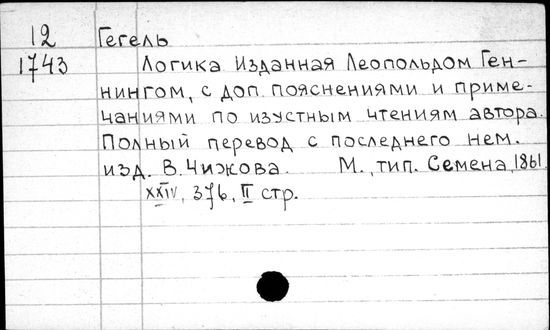 12 Гегель
1743 Логика Изданная Леопольдом Ген-
нингом, с доп. пояснениями и приме-
чаниями по изустным чтениям автора.
Полный перевод с последнего нем.
изд. В. Чижова. М., тип. Семена, 1861
XXIV, 376, II стр.